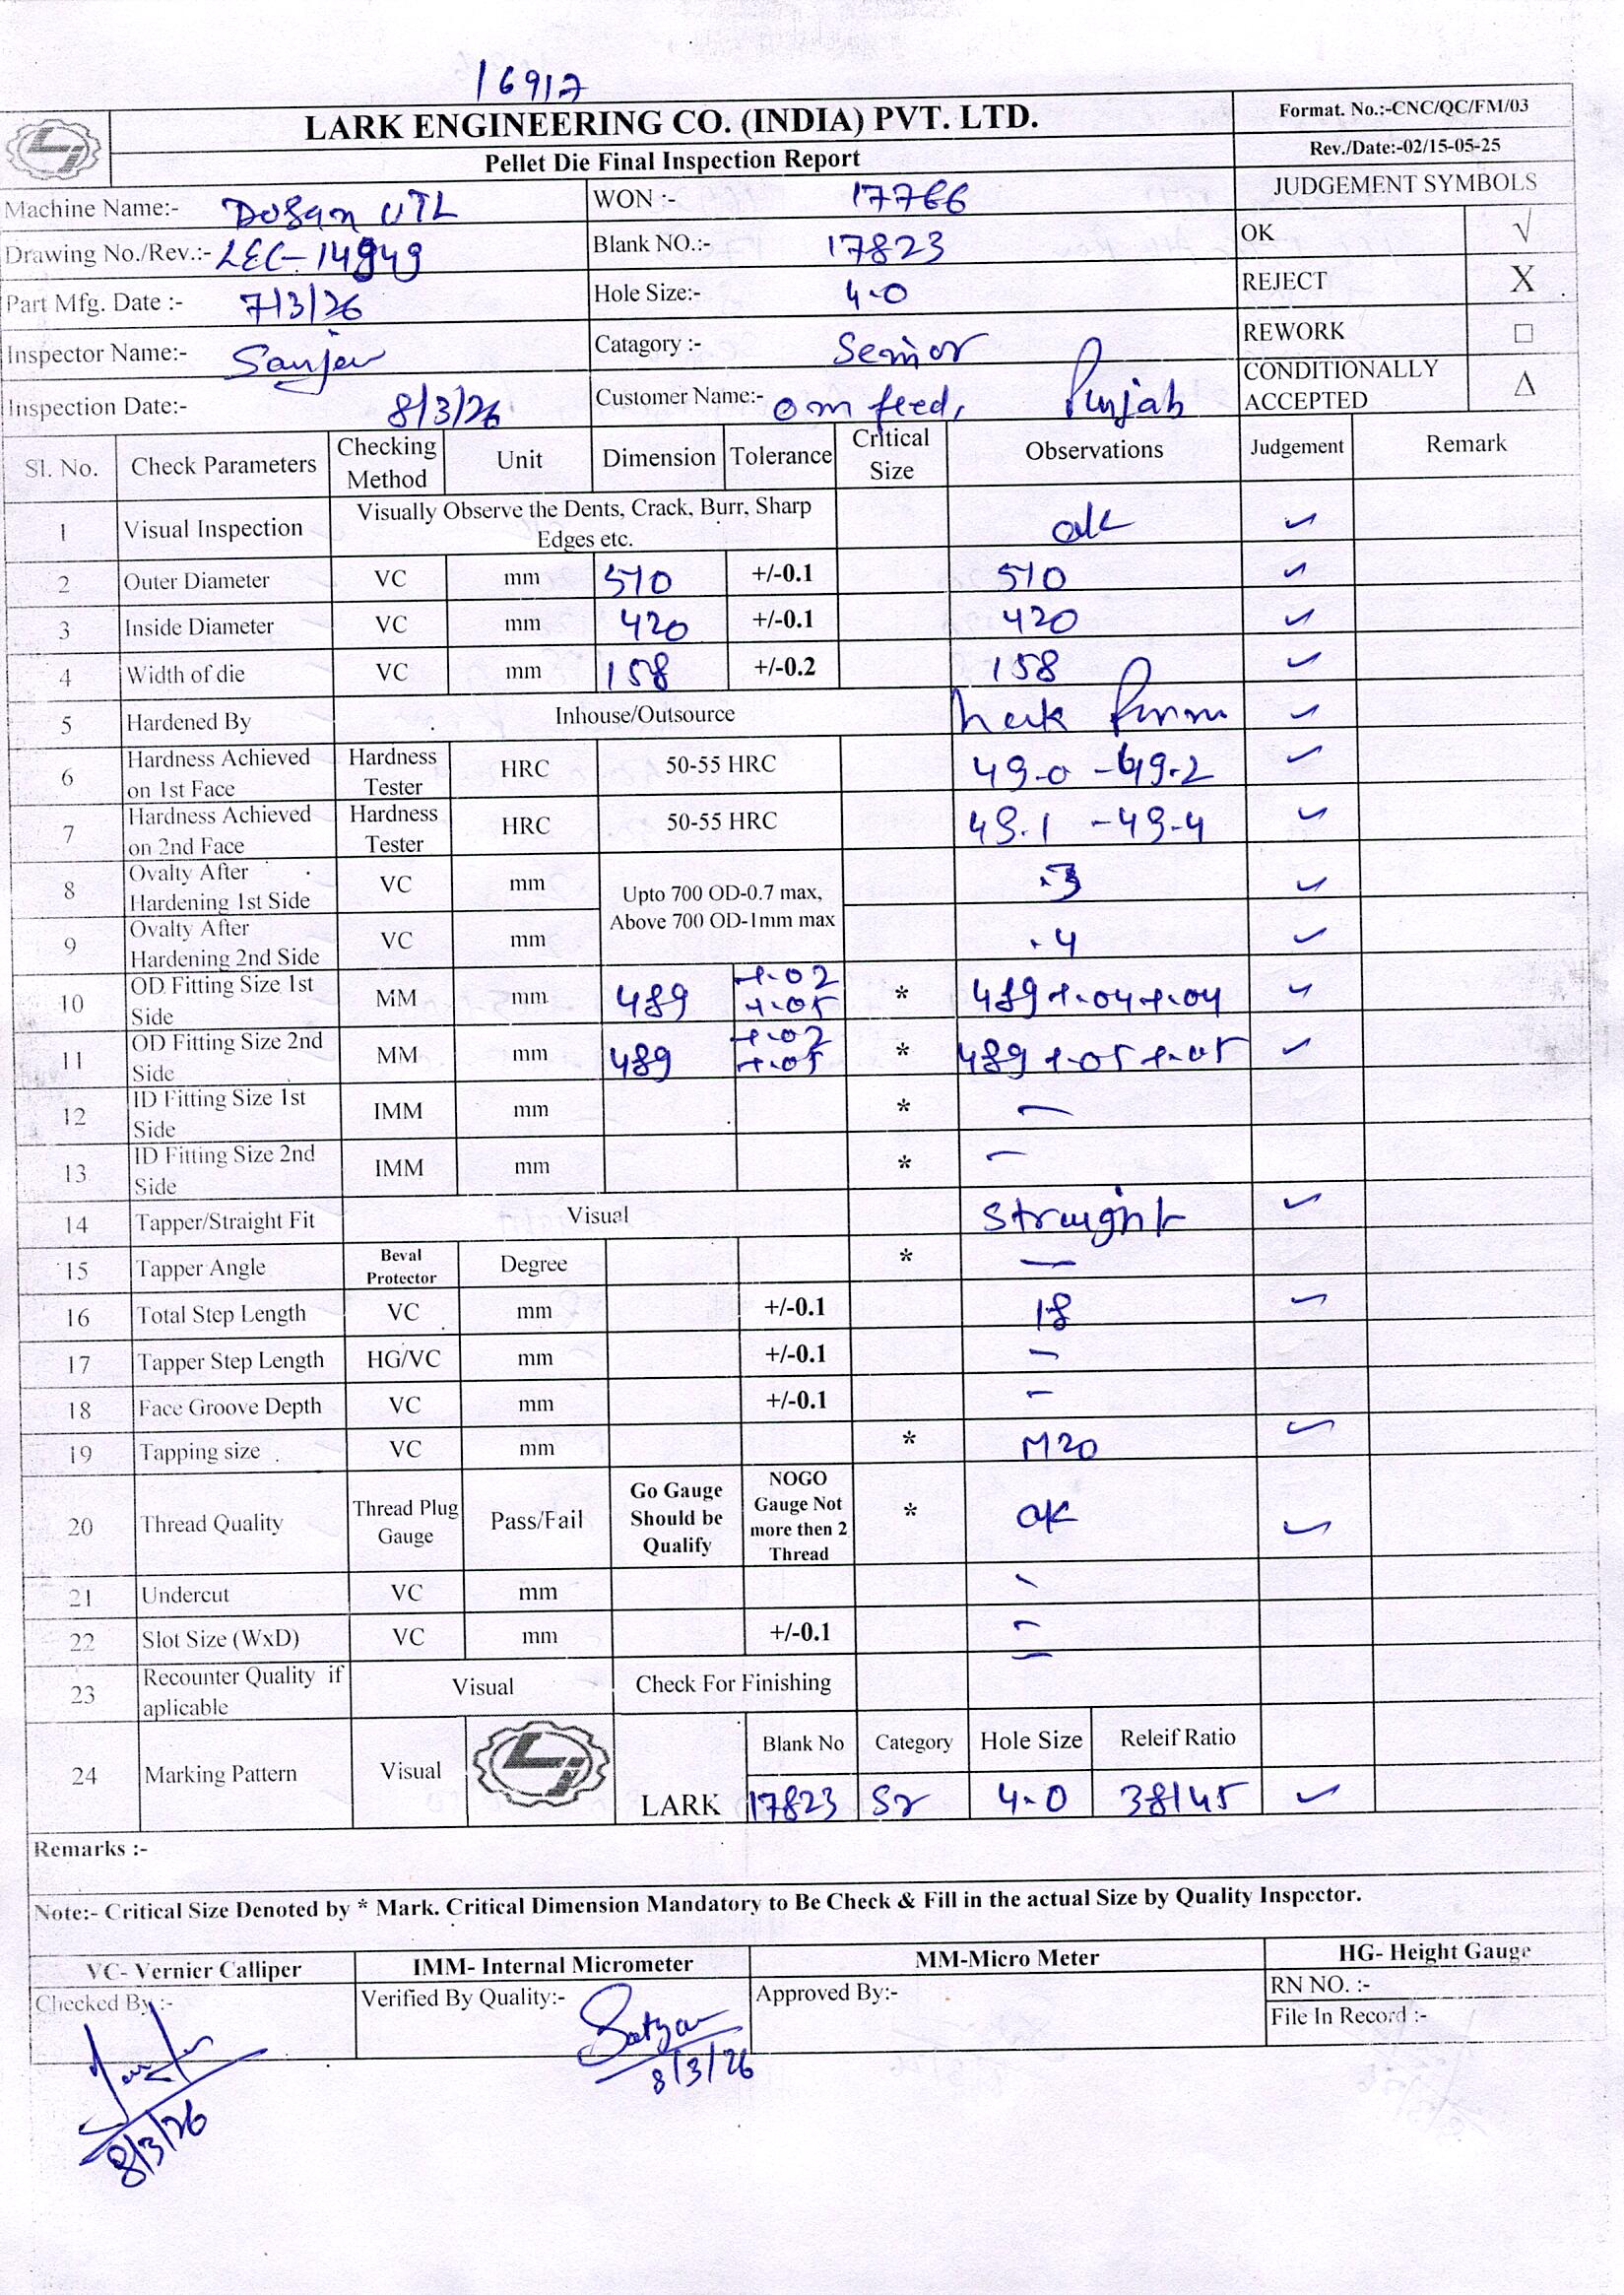 16917
LARK ENGINEERING CO. (INDIA) PVT. LTD.
Pellet Die Final Inspection Report
Format. No.:-CNC/QC/FM/03
Rev./Date:-02/15-05-25
JUDGEMENT SYMBOLS
Machine Name:- Dosan UTL WON :- 17766
OK √
Drawing No./Rev.:- LEC-14949 Blank NO.:- 17823
REJECT X
Part Mfg. Date :- 7/3/26 Hole Size:- 4.0
REWORK □
Inspector Name:- Sanjev Catagory :- Senior
CONDITIONALLY ACCEPTED Δ
Inspection Date:- 8/3/26 Customer Name:- om feed, Punjab
Sl. No. Check Parameters Checking Method Unit Dimension Tolerance Critical Size Observations Judgement Remark
1 Visual Inspection Visually Observe the Dents, Crack, Burr, Sharp Edges etc. ok ✓
2 Outer Diameter VC mm 510 +/-0.1 510 ✓
3 Inside Diameter VC mm 420 +/-0.1 420 ✓
4 Width of die VC mm 158 +/-0.2 158 ✓
5 Hardened By Inhouse/Outsource ✓
6 Hardness Achieved on 1st Face Hardness Tester HRC 50-55 HRC 49.0 - 49.2 ✓
7 Hardness Achieved on 2nd Face Hardness Tester HRC 50-55 HRC 49.1 - 49.4 ✓
8 Ovalty After Hardening 1st Side VC mm Upto 700 OD-0.7 max, Above 700 OD-1mm max .3 ✓
9 Ovalty After Hardening 2nd Side VC mm .4 ✓
10 OD Fitting Size 1st Side MM mm 489 +.02 +.05 * 489 +.04 +.04 ✓
11 OD Fitting Size 2nd Side MM mm 489 +.02 +.05 * 489 +.05 +.05 ✓
12 ID Fitting Size 1st Side IMM mm * —
13 ID Fitting Size 2nd Side IMM mm * —
14 Tapper/Straight Fit Visual Straight ✓
15 Tapper Angle Beval Protector Degree * —
16 Total Step Length VC mm +/-0.1 18 ✓
17 Tapper Step Length HG/VC mm +/-0.1 —
18 Face Groove Depth VC mm +/-0.1 —
19 Tapping size VC mm * M20 ✓
20 Thread Quality Thread Plug Gauge Pass/Fail Go Gauge Should be Qualify NOGO Gauge Not more then 2 Thread * ok ✓
21 Undercut VC mm —
22 Slot Size (WxD) VC mm +/-0.1 —
23 Recounter Quality if aplicable Visual Check For Finishing —
24 Marking Pattern Visual LARK Blank No Category Hole Size Releif Ratio
17823 Sr 4.0 38/45 ✓
Remarks :-
Note:- Critical Size Denoted by * Mark. Critical Dimension Mandatory to Be Check & Fill in the actual Size by Quality Inspector.
VC- Vernier Calliper IMM- Internal Micrometer MM-Micro Meter HG- Height Gauge
Checked By :- Verified By Quality:- Approved By:- RN NO. :-
File In Record :-
Satyam
8/3/26
8/3/26